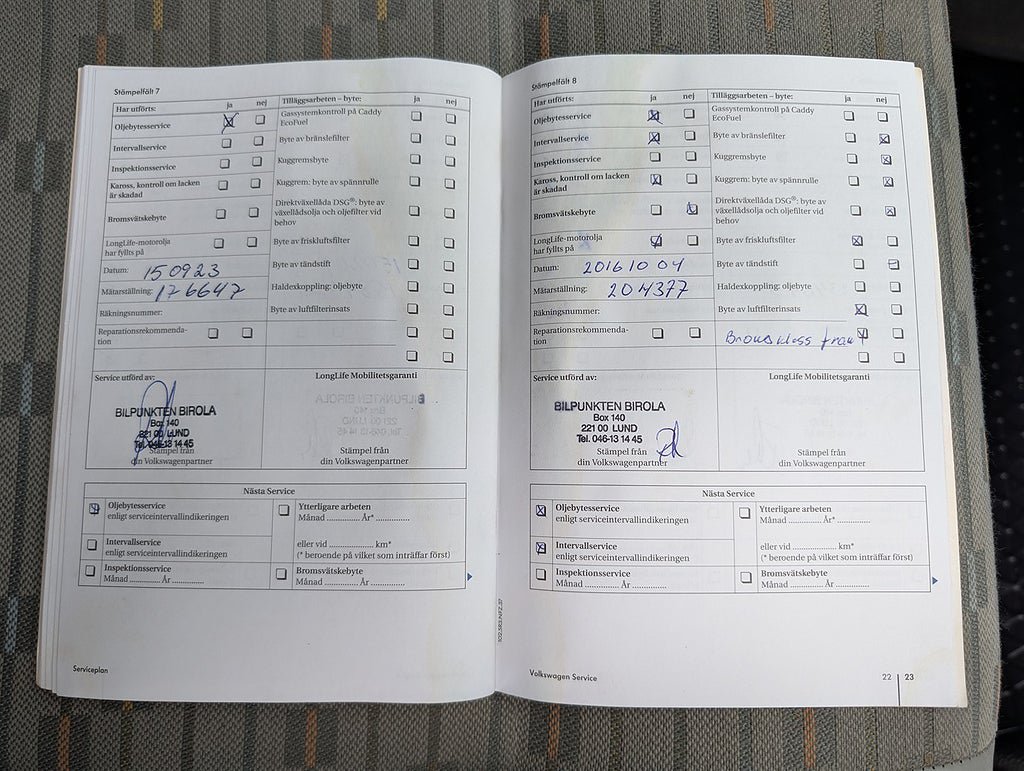 Stämpelfält 7
Har utförts: ja nej
Oljebytesservice
Intervallservice
Inspektionsservice
Kaross, kontroll om lacken
är skadad
Bromsvätskebyte
LongLife-motorolja
har fyllts på
Datum: 150923
Mätarställning: 176647
Räkningsnummer:
Reparationsrekommenda-
tion
Tilläggsarbeten – byte: ja nej
Gassystemkontroll på Caddy
EcoFuel
Byte av bränslefilter
Kuggremsbyte
Kuggrem: byte av spännrulle
Direktväxellåda DSG®: byte av
växellådsolja och oljefilter vid
behov
Byte av friskluftsfilter
Byte av tändstift
Haldexkoppling: oljebyte
Byte av luftfilterinsats
Service utförd av:
BILPUNKTEN BIROLA
Box 140
221 00 LUND
Tel. 046-13 14 45
Stämpel från
din Volkswagenpartner
LongLife Mobilitetsgaranti
Stämpel från
din Volkswagenpartner
Nästa Service
Oljebytesservice
enligt serviceintervallindikeringen
Intervallservice
enligt serviceintervallindikeringen
Inspektionsservice
Månad .............. År ..............
Ytterligare arbeten
Månad .............. År* ..............
eller vid .............. km*
(* beroende på vilket som inträffar först)
Bromsvätskebyte
Månad .............. År ..............
Serviceplan
102.5R3.NFZ.37
Stämpelfält 8
Har utförts: ja nej
Oljebytesservice
Intervallservice
Inspektionsservice
Kaross, kontroll om lacken
är skadad
Bromsvätskebyte
LongLife-motorolja
har fyllts på
Datum: 20161004
Mätarställning: 204377
Räkningsnummer:
Reparationsrekommenda-
tion
Tilläggsarbeten – byte: ja nej
Gassystemkontroll på Caddy
EcoFuel
Byte av bränslefilter
Kuggremsbyte
Kuggrem: byte av spännrulle
Direktväxellåda DSG®: byte av
växellådsolja och oljefilter vid
behov
Byte av friskluftsfilter
Byte av tändstift
Haldexkoppling: oljebyte
Byte av luftfilterinsats
Service utförd av:
BILPUNKTEN BIROLA
Box 140
221 00 LUND
Tel. 046-13 14 45
Stämpel från
din Volkswagenpartner
LongLife Mobilitetsgaranti
Stämpel från
din Volkswagenpartner
Nästa Service
Oljebytesservice
enligt serviceintervallindikeringen
Intervallservice
enligt serviceintervallindikeringen
Inspektionsservice
Månad .............. År ..............
Ytterligare arbeten
Månad .............. År* ..............
eller vid .............. km*
(* beroende på vilket som inträffar först)
Bromsvätskebyte
Månad .............. År ..............
Volkswagen Service
22 23